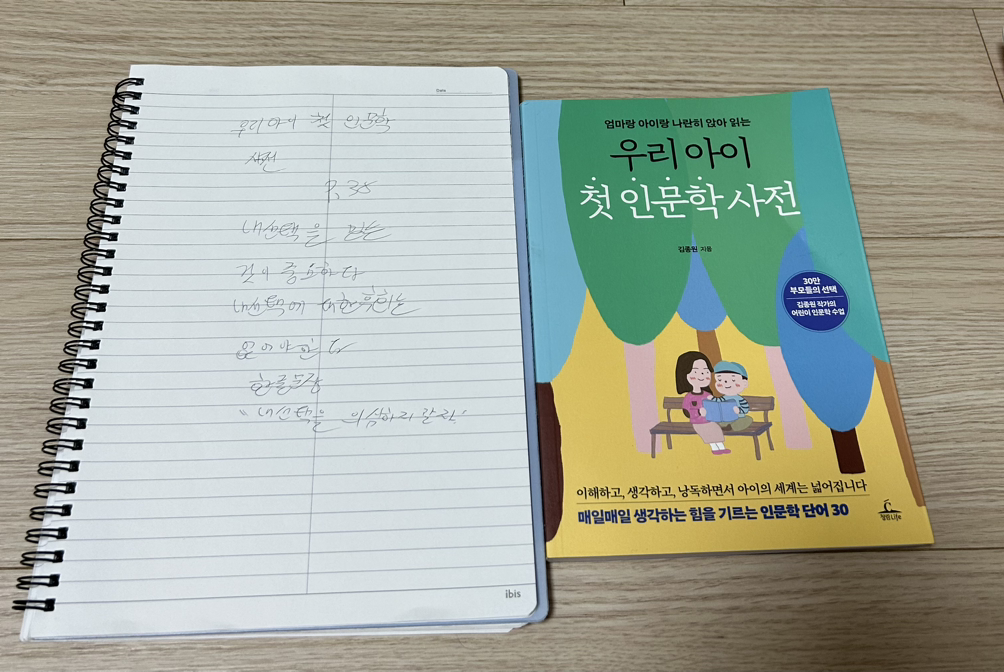 Date
우리 아이 첫 인문학
사전
P. 35
내 선택을 믿는
것이 중요하다
내 선택에 대한 후회는
없어야 한다
한 줄 문장
"내 선택을 의심하지 말자"
ibis
엄마랑 아이랑 나란히 앉아 읽는
우리 아이
첫 인문학 사전
김종원 지음
30만
부모들의 선택
김종원 작가의
어린이 인문학 수업
이해하고, 생각하고, 낭독하면서 아이의 세계는 넓어집니다
매일매일 생각하는 힘을 기르는 인문학 단어 30
청림Life